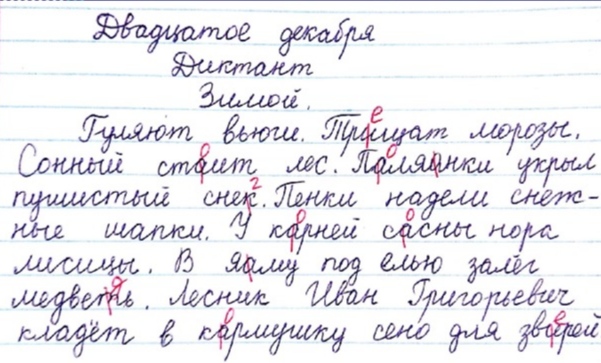 Двадцатое декабря
Диктант
Зимой.
Гуляют вьюги. Трищат морозы.
Сонный стаит лес. Паляанки укрыл
пушистый снек. Пенки надели снеж-
ные шапки. У карней сасны нора
лисицы. В Яаму под елью залёг
медветь. Лесник Иван Григорьевич
кладёт в кармушку сено для звирей